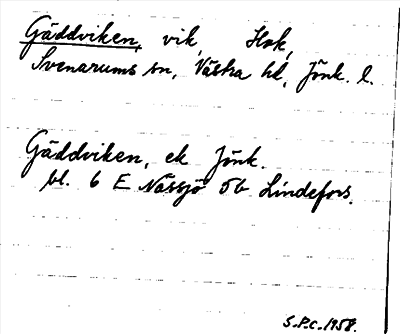 Gäddviken, vik, Hok,
Svenarums sn, Västra hd, Jönk. l.
Gäddviken, ek Jönk.
bl. 6 E Nässjö 5b Lindefors.
S.P.C. 1958.